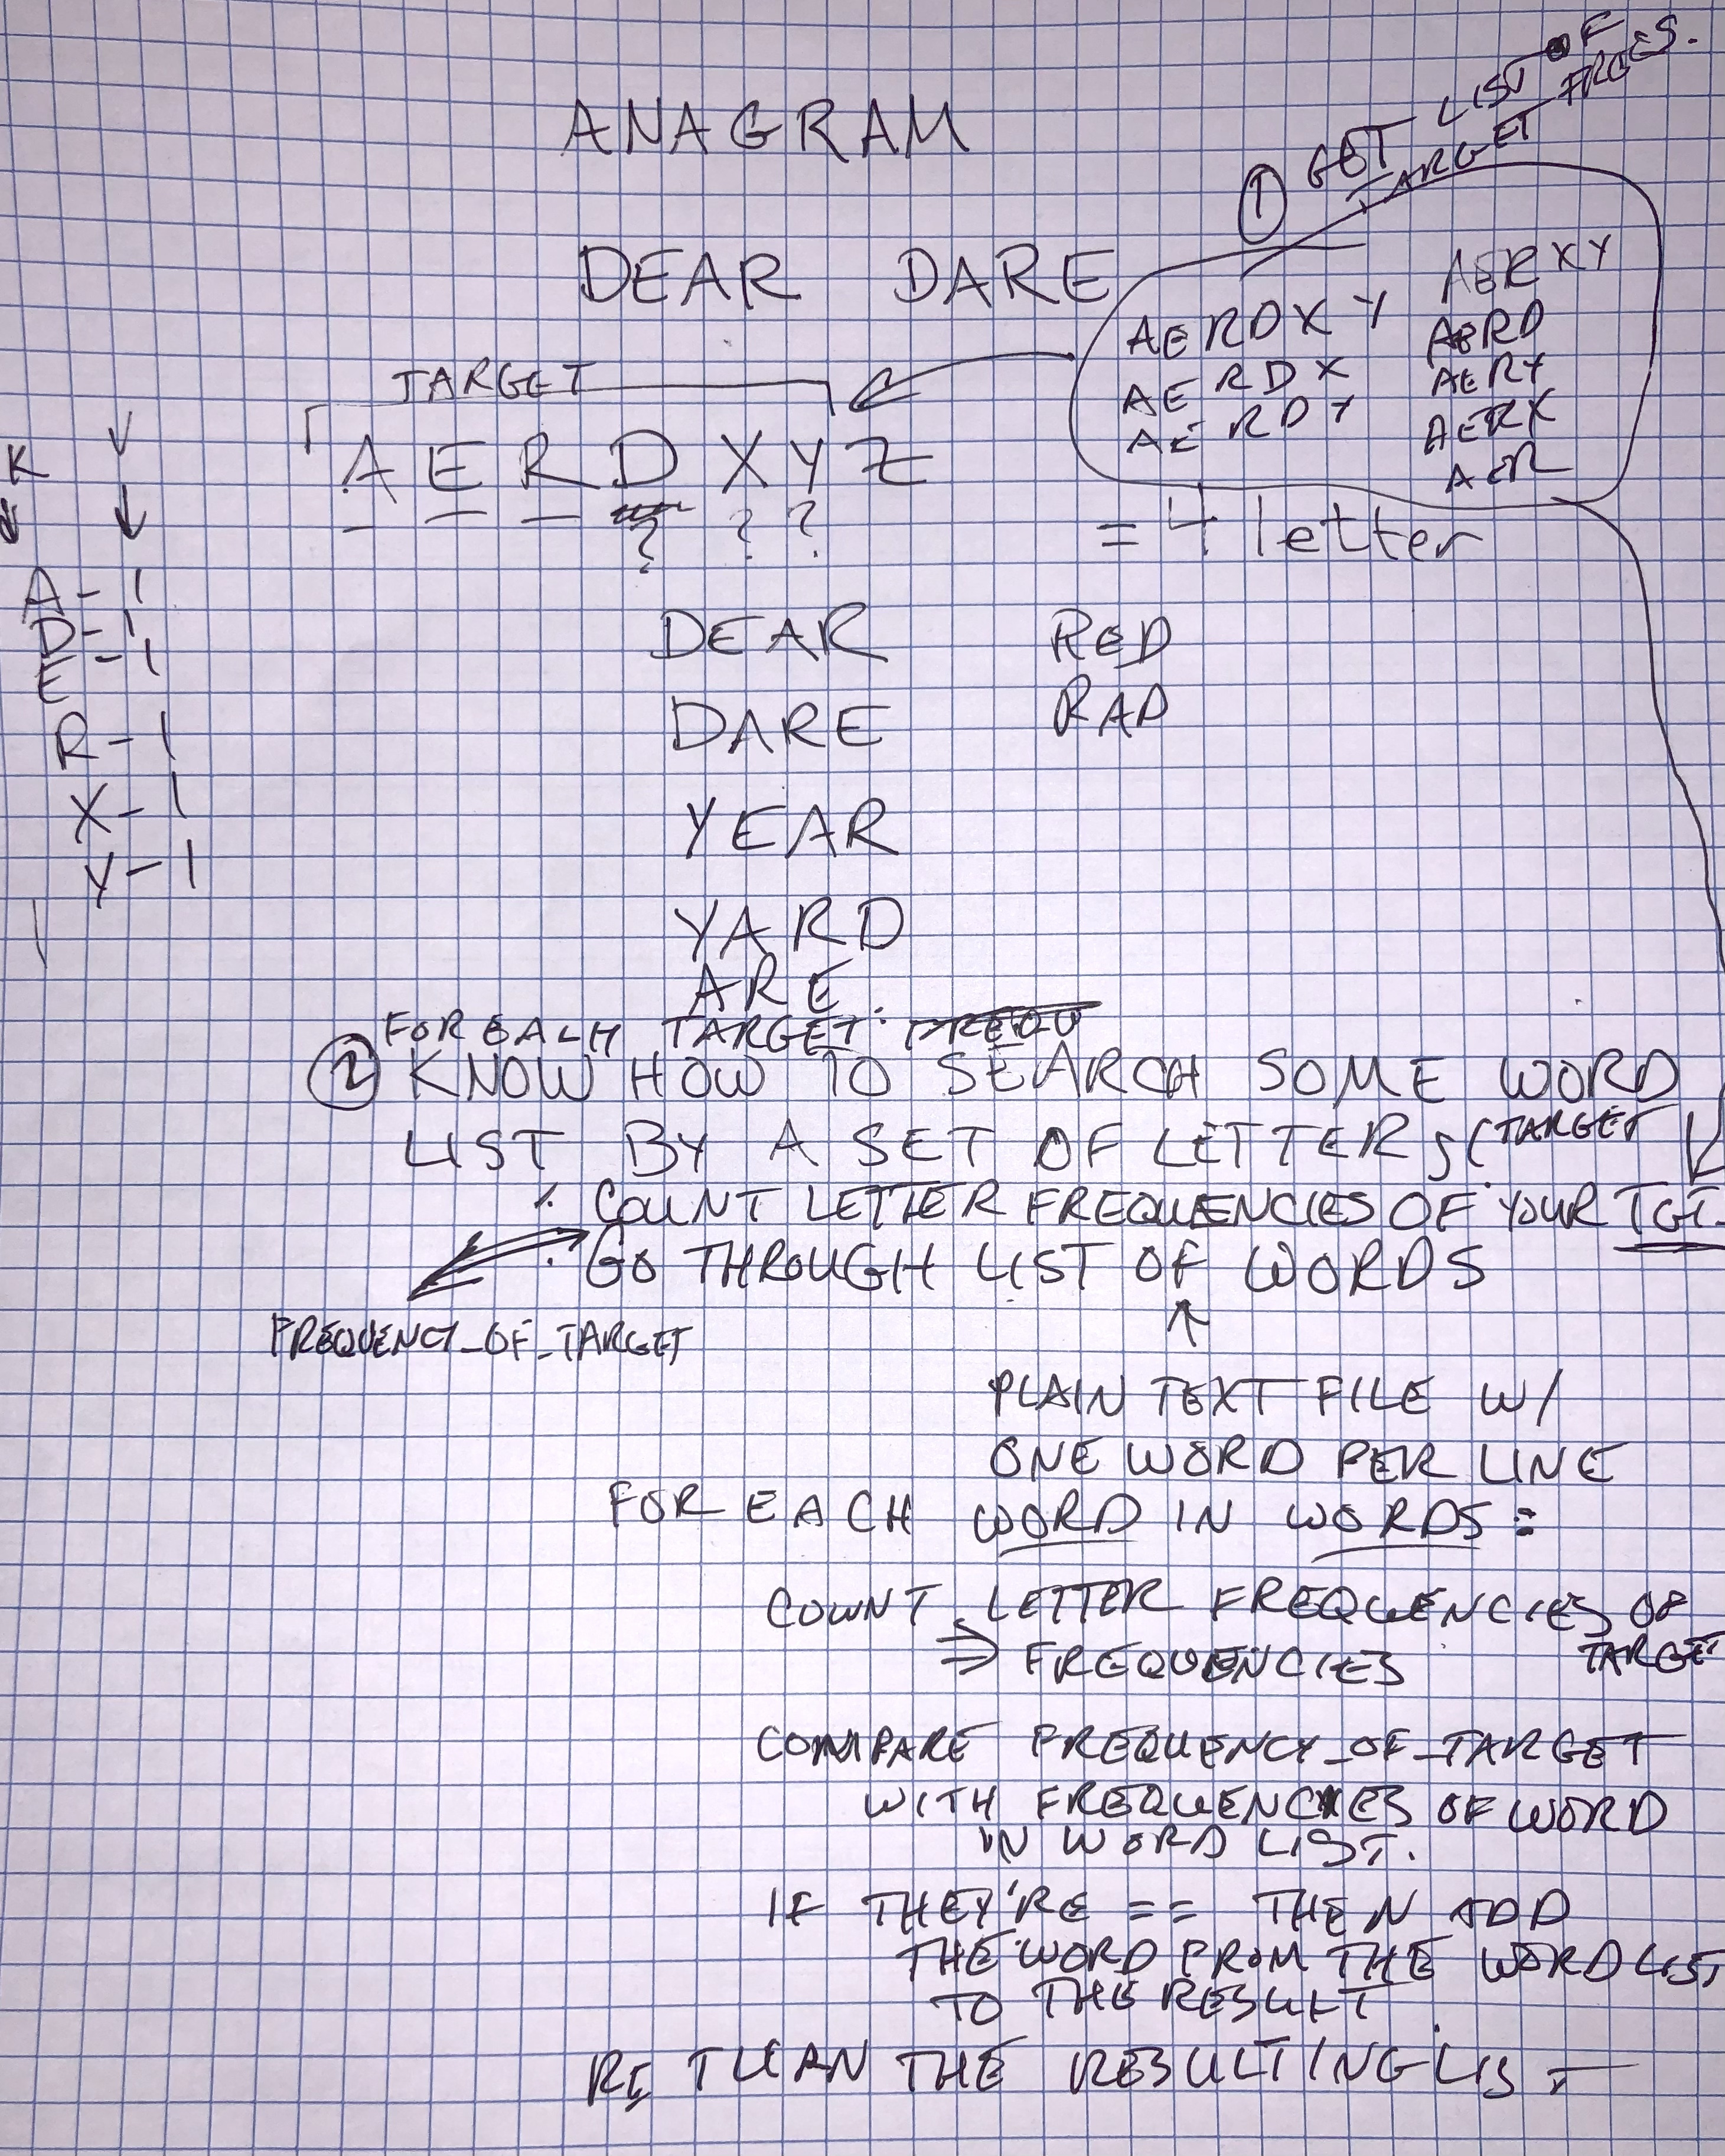 ① GET LIST OF
TARGET FREES.
ANAGRAM
DEAR DARE
AERDXY AERXY
AERDX AERD
AERDY AERY
AERX
AER
TARGET
AERDXYZ
? ? ?
= 4 letter
K
A-1
D-1
E-1
R-1
X-1
Y-1
DEAR RED
DARE RAD
YEAR
YARD
ARE
FOR EACH TARGET:
② KNOW HOW TO SEARCH SOME WORD
LIST BY A SET OF LETTERS (TARGET
· COUNT LETTER FREQUENCIES OF YOUR TGT.
· GO THROUGH LIST OF WORDS
FREQUENCY_OF_TARGET
PLAIN TEXT FILE W/
ONE WORD PER LINE
FOR EACH WORD IN WORDS:
COUNT LETTER FREQUENCIES OF
TARGET
⇒ FREQUENCIES
COMPARE FREQUENCY_OF_TARGET
WITH FREQUENCIES OF WORD
IN WORD LIST.
IF THEY'RE == THEN ADD
THE WORD FROM THE WORD LIST
TO THE RESULT.
RETURN THE RESULTING LIST